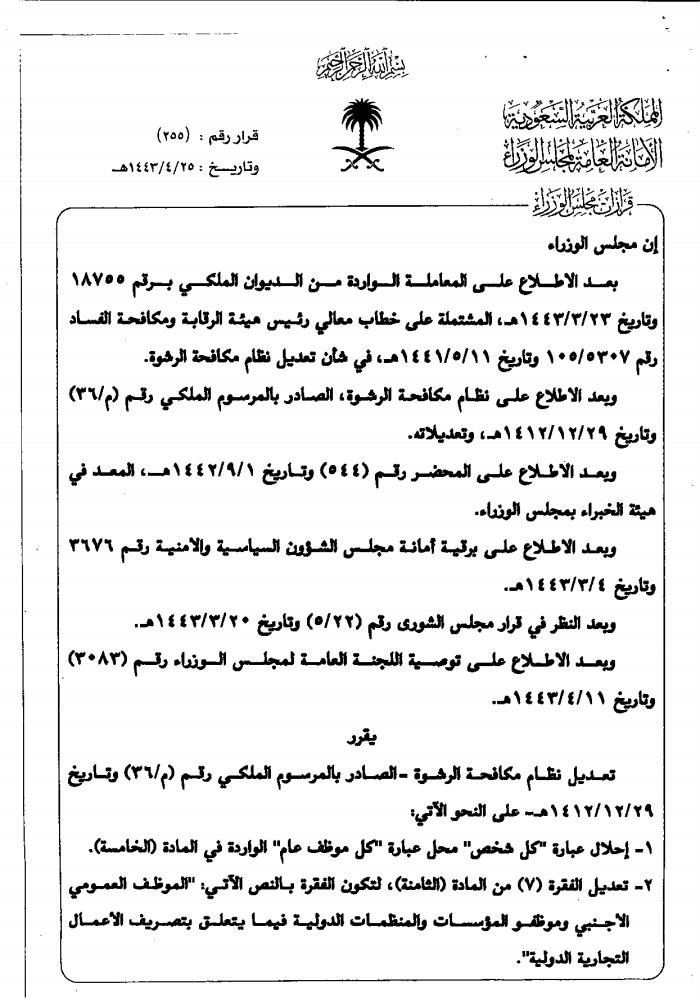 بسم الله الرحمن الرحيم
المملكة العربية السعودية
الأمانة العامة لمجلس الوزراء
قرار رقم : (٢٥٥)
وتاريخ : ١٤٤٣/٤/٢٥هـ
قرارات مجلس الوزراء
إن مجلس الوزراء
بعد الاطلاع على المعاملة الواردة من الديوان الملكي برقم ١٨٧٥٥
وتاريخ ١٤٤٣/٣/٢٣هـ، المشتملة على خطاب معالي رئيس هيئة الرقابة ومكافحة الفساد
رقم ١٠٥/٥٣٠٧ وتاريخ ١٤٤١/٥/١١هـ، في شأن تعديل نظام مكافحة الرشوة.
وبعد الاطلاع على نظام مكافحة الرشوة، الصادر بالمرسوم الملكي رقم (م/٣٦)
وتاريخ ١٤١٢/١٢/٢٩هـ، وتعديلاته.
وبعد الاطلاع على المحضر رقم (٥٤٤) وتاريخ ١٤٤٢/٩/١هـ، المعد في
هيئة الخبراء بمجلس الوزراء.
وبعد الاطلاع على برقية أمانة مجلس الشؤون السياسية والأمنية رقم ٣٦٧٦
وتاريخ ١٤٤٣/٣/٤هـ.
وبعد النظر في قرار مجلس الشورى رقم (٥/٢٢) وتاريخ ١٤٤٣/٣/٢٠هـ.
وبعد الاطلاع على توصية اللجنة العامة لمجلس الوزراء رقم (٣٠٨٣)
وتاريخ ١٤٤٣/٤/١١هـ.
يقرر
تعديل نظام مكافحة الرشوة -الصادر بالمرسوم الملكي رقم (م/٣٦) وتاريخ
١٤١٢/١٢/٢٩هـ- على النحو الآتي:
١- إحلال عبارة "كل شخص" محل عبارة "كل موظف عام" الواردة في المادة (الخامسة).
٢- تعديل الفقرة (٧) من المادة (الثامنة)، لتكون الفقرة بالنص الآتي: "الموظف العمومي
الأجنبي وموظفو المؤسسات والمنظمات الدولية فيما يتعلق بتصريف الأعمال
التجارية الدولية".